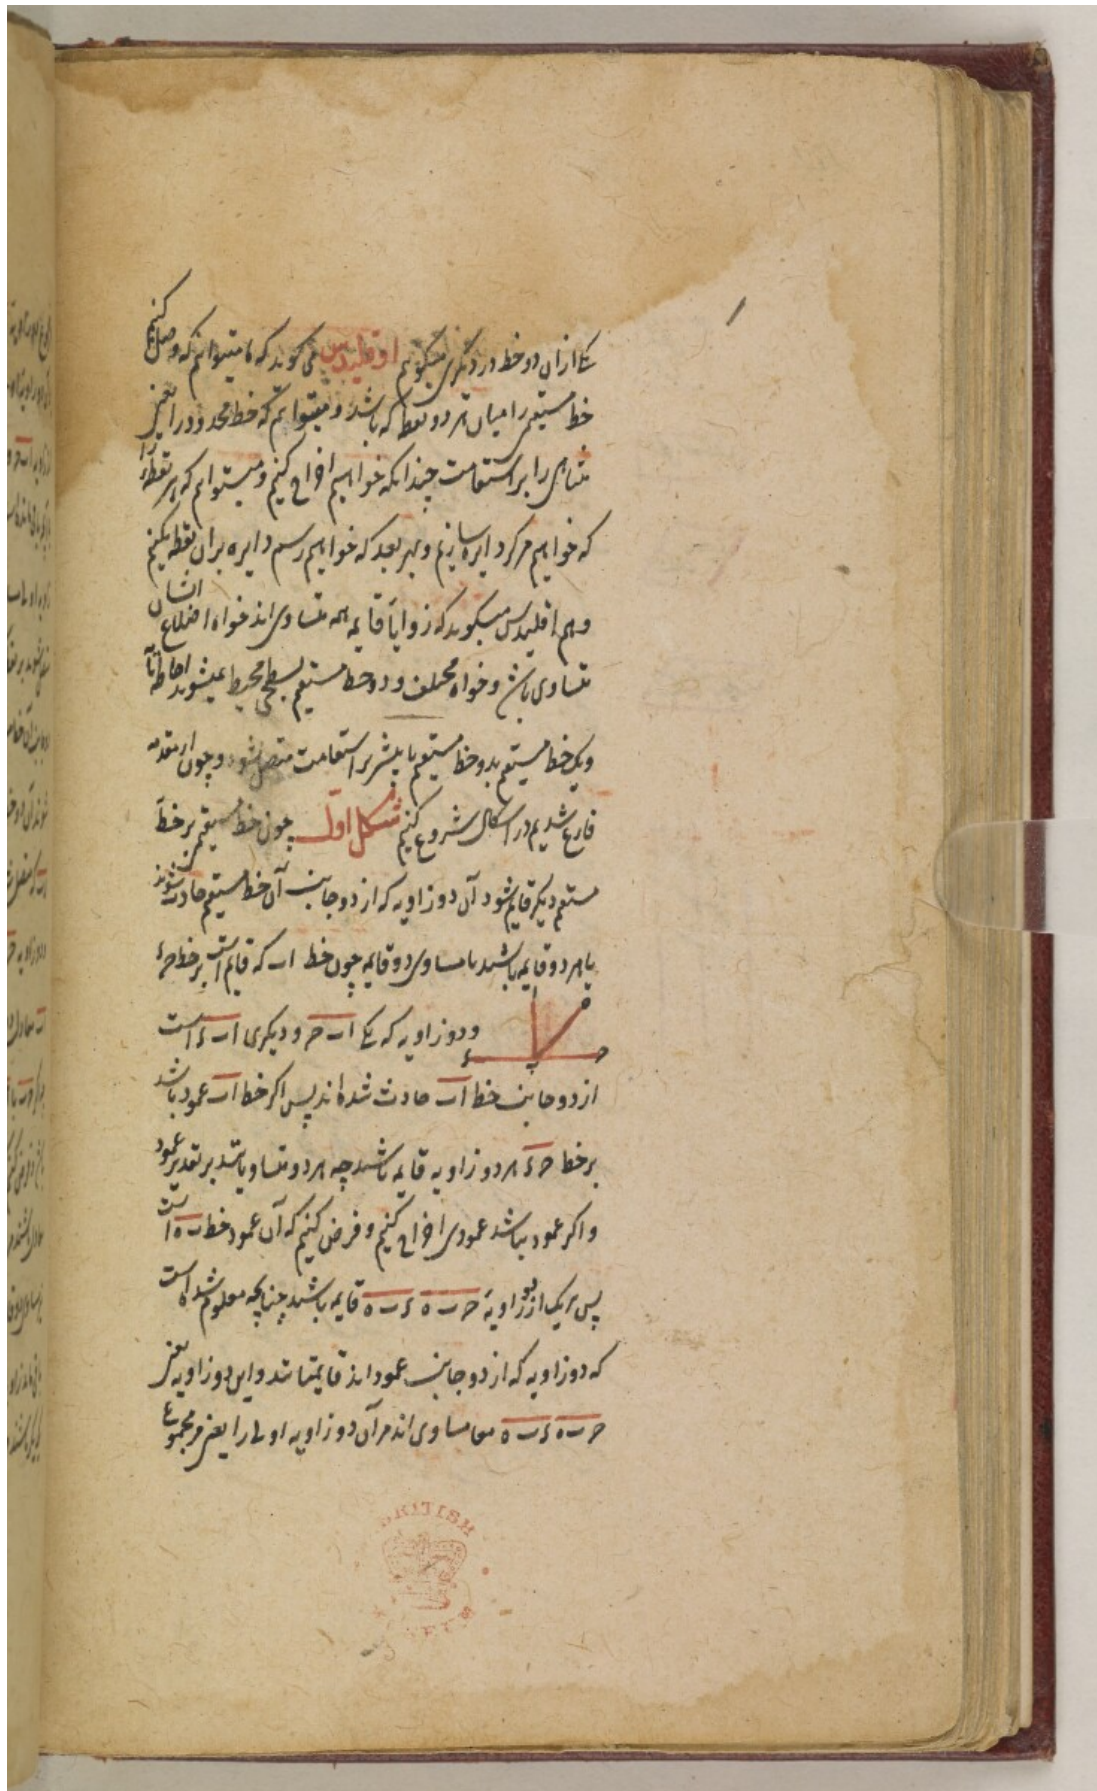 یکی ازان دو خط در دیگری میگویم اوقلیدس می گوید که ما میتوانیم که وصل کنیم
خط مستقیم را میان هر دو نقطه که باشد و میتوانیم که خط محدود را یعنی
متناهی را بر استقامت چندانکه خواهیم اخراج کنیم و میتوانیم که هر نقطه را
که خواهیم مرکز دایره سازیم و بهر بعد که خواهیم رسم دایره بران نقطه بکنیم
و هم اقلیدس میگوید که زوایا قایمه همه متساوی اند خواه اضلاع ایشان
متساوی باشن و خواه مختلف و دو خط مستقیم بسطحی محیط نمیشوند احاطه تامّ
و یک خط مستقیم بدو خط مستقیم یا بیشتر بر استقامت متصل نشود و چون از مقدمه
فارغ شدیم در اشکال شروع کنیم شکل اوّل چون خط مستقیم بر خط
مستقیم دیگر قایم شود آن دو زاویه که از دو جانب آن خط مستقیم حادث شوند
یا هر دو قایمه باشند یا مساوی دو قایمه چون خط اب که قایم است بر خط حء
و دو زاویه که یکی اب ح و دیگری اب ء است
ا ه ح ب ء
از دو جانب خط اب حادث شده اند پس اکر خط اب عمود باشد
بر خط حء هر دو زاویه قایمه باشند چه هر دو متساوی باشند بر تقدیر عمود
و اکر عمود نباشد عمودی اخراج کنیم و فرض کنیم که آن عمود خط ب ه است
پس هر یک از دو زاویهٔ ح ب ه ء ب ه قایمه باشند چنانچه معلوم شده است
که دو زاویه که از دو جانب عمود اند قایمتانند و این دو زاویه یعنی
ح ب ه ء ب ه معا مساوی اند مر آن دو زاویه اولی را یعنی مر مجموع